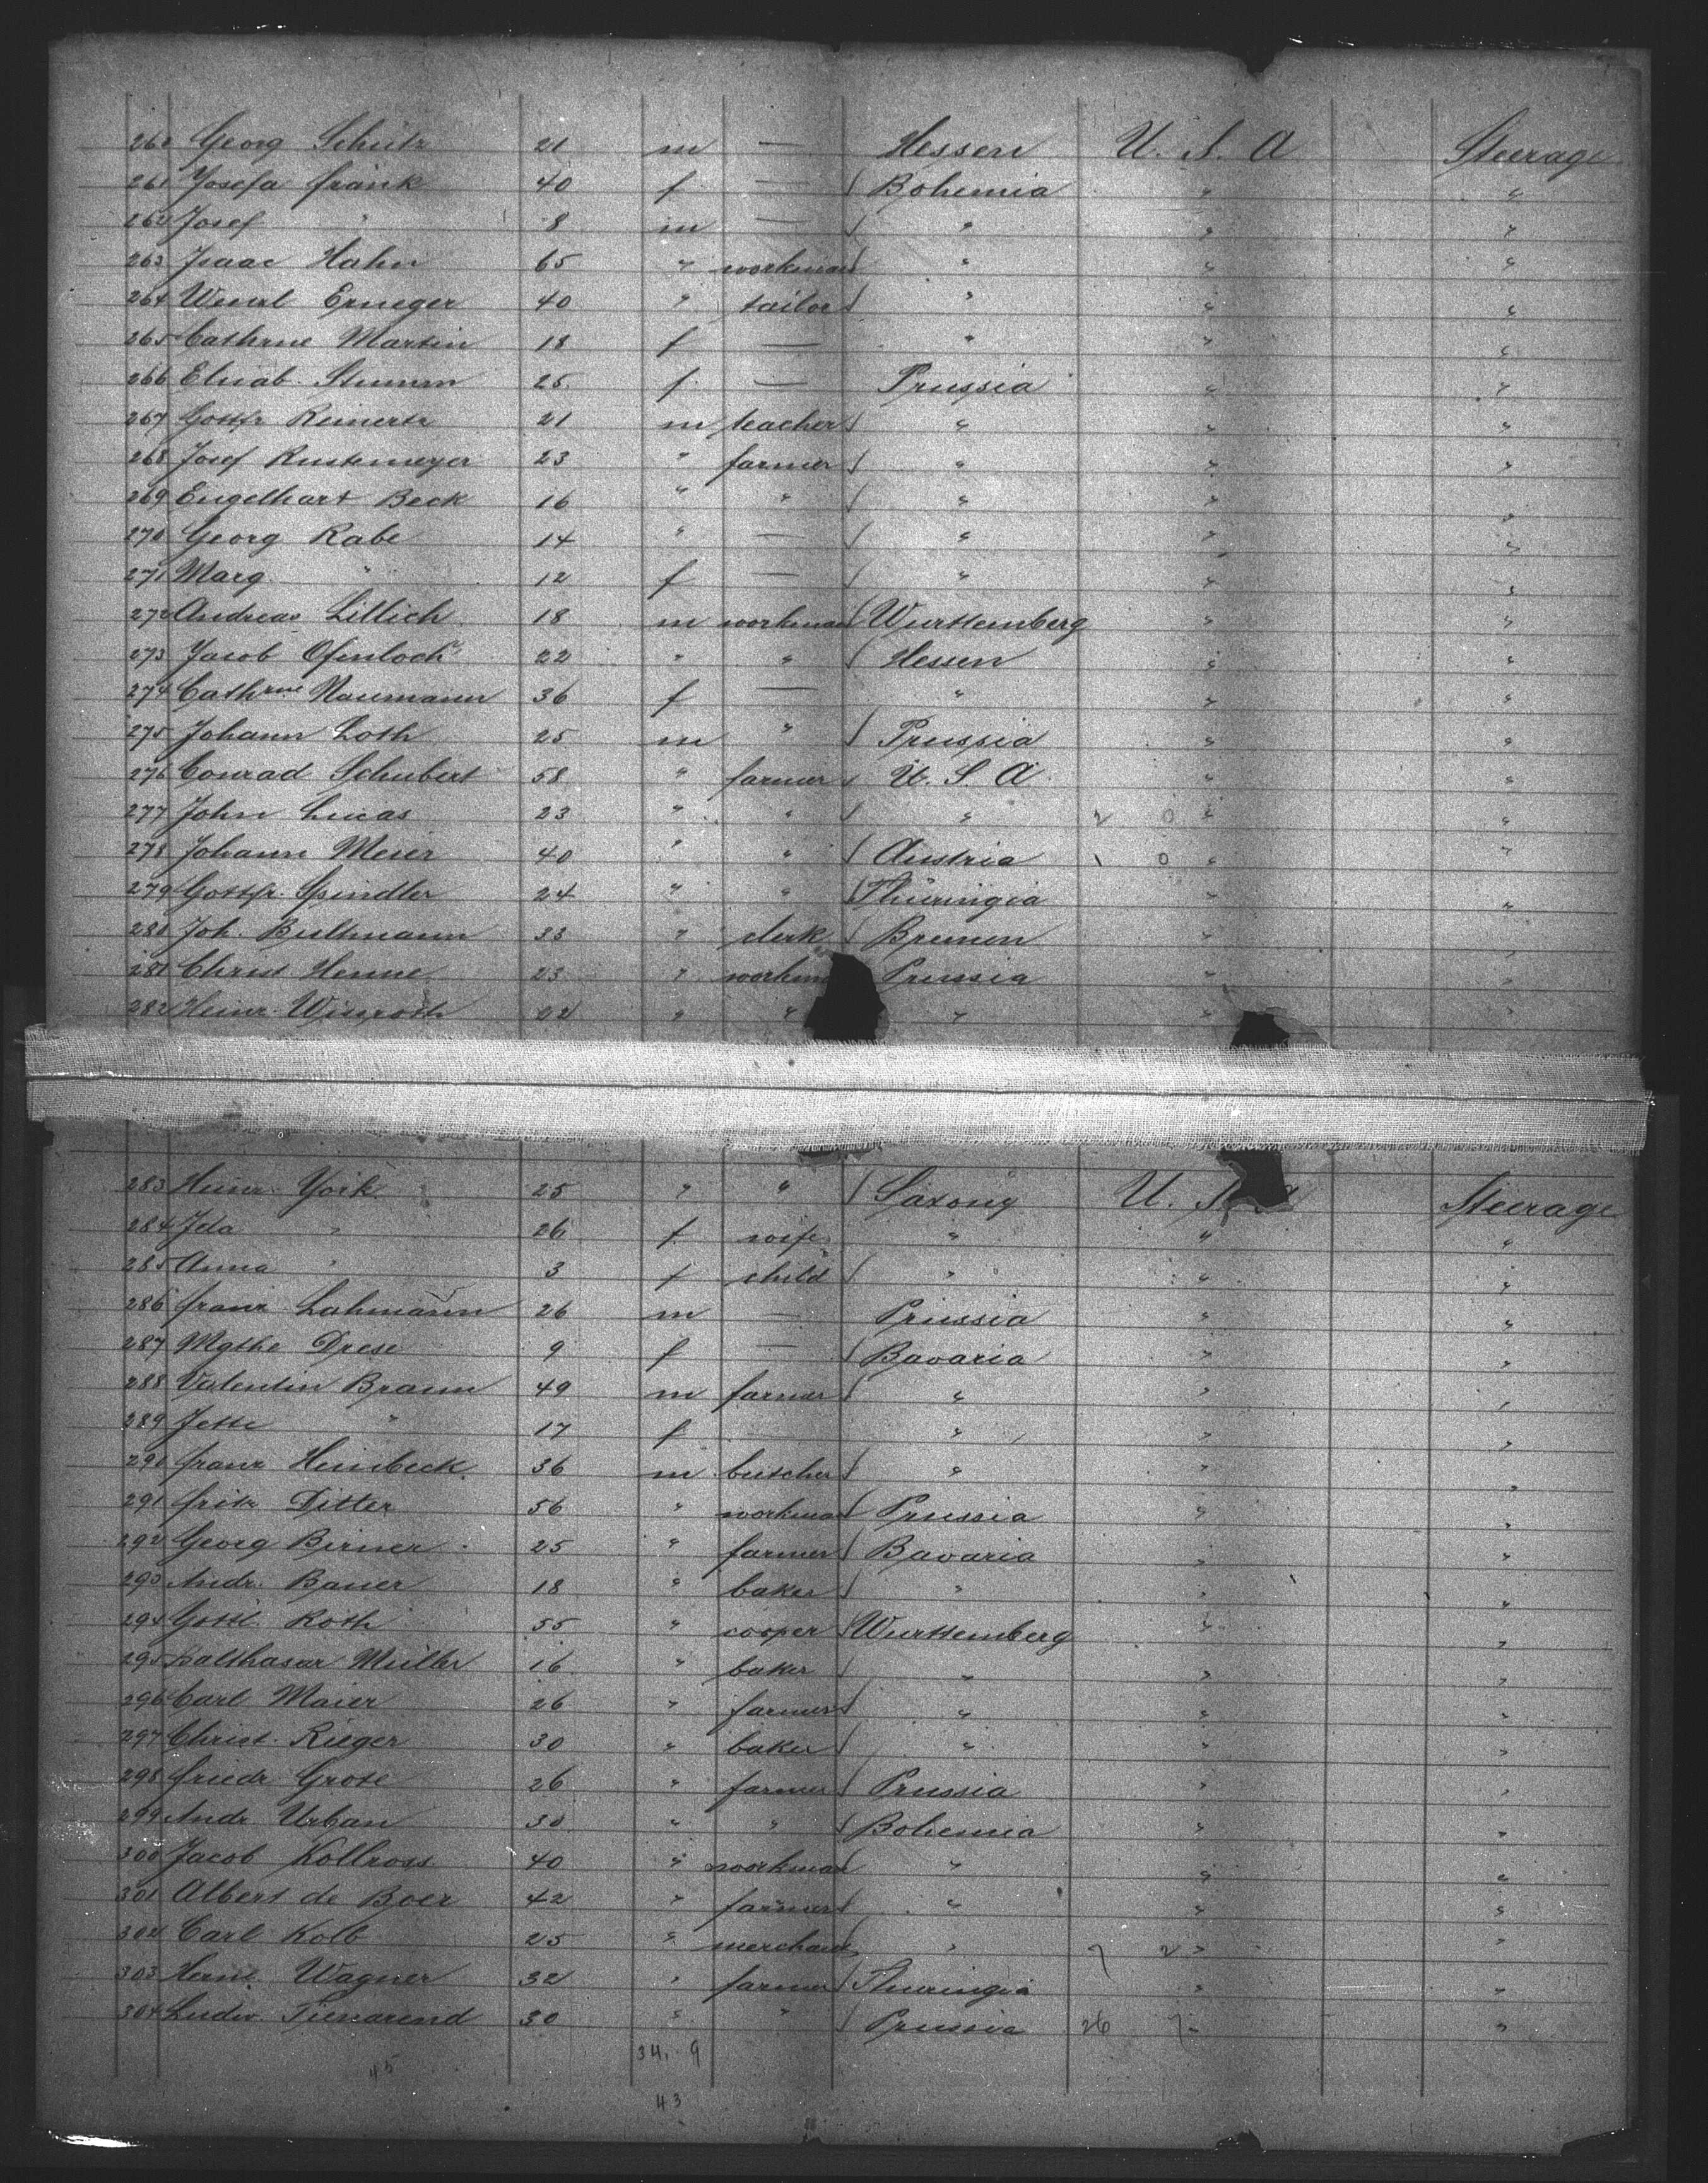 260 Georg Schütz 21 m — Hessen U. S. A Steerage
261 Josefa Frank 40 f — Bohemia " "
262 Josef " 8 m — " " "
263 Isaac Hahn 65 " workman " " "
264 Wenzl 40 " tailor " " "
265 Cathrne Martin 18 f — " " "
266 Elisab. Stumm 25 f. — Prussia " "
267 Gottfr Reinertz 21 m teacher " " "
268 Josef Rustemeyer 23 " farmer " " "
269 Engelhart Beck 16 " " " " "
270 Georg Rabe 14 " — " " "
271 Marg. " 12 f — " " "
272 Andreas Lillich 18 m workman Wurttemberg " "
273 Jacob Ofenloch 22 " " Hessen " "
274 Cathrne Naumann 36 f — " " "
275 Johann Loth 25 m " Prussia " "
276 Conrad Schubert 58 " farmer U. S. A " "
277 John Lucas 23 " " " 2 0 " "
278 Johann Meier 40 " " Austria 1 0 " "
279 Gottfr. Spindler 24 " " Thuringia " "
280 Joh. Bultmann 33 " clerk Bremen " "
281 Christ Henne 23 " workm Prussia " "
282 Heinr. 22 " " " " "
283 Heinr. York 25 " " Saxony U. S. A Steerage
284 Ida " 26 f. wife " " "
285 Anna " 3 f child " " "
286 Franz Lahmann 26 m — Prussia " "
287 Mgthe Drese 9 f — Bavaria " "
288 Valentin Braun 49 m farmer " " "
289 Jette " 17 f — " " "
290 Franz Heinbeck 36 m butcher " " "
291 Fritz Ditter 56 " workman Prussia " "
292 Georg Birner 25 " farmer Bavaria " "
293 Andr. Bauer 18 " baker " " "
294 Gottl. Roth 55 " cooper Wurttemberg " "
295 Balthasar Müller 16 " baker " " "
296 Carl Maier 26 " farmer " " "
297 Christ. Rieger 30 " baker " " "
298 Friedr Grote 26 " farmer Prussia " "
299 Andr Urban 30 " " Bohemia " "
300 Jacob Kollross 40 " workman " " "
301 Albert de Boer 42 " farmer " " "
302 Carl Kolb 25 " merchant " 7 2 " "
303 Herm. Wagner 32 " farmer Thuringia " "
304 Ludw. 30 " " Prussia 26 7 " "
34. 9
45
43